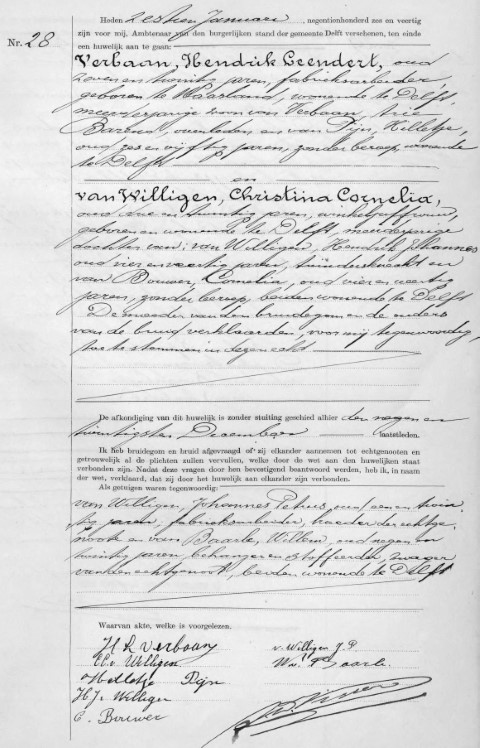 Nr. 28
Heden zestien Januari, negentienhonderd zes en veertig
zijn voor mij, Ambtenaar van den burgerlijken stand der gemeente Delft verschenen, ten einde
een huwelijk aan te gaan:
Verbaan, Hendrik Leendert, oud
zeven en twintig jaren, fabrieksarbeider,
geboren te Maasland, wonende te Delft,
meerderjarige zoon van Verbaan, Arie
overleden en van Pijn, Hilletje,
oud zes en vijftig jaren, zonder beroep, wonende
te Delft
en
van Willigen, Christina Cornelia,
oud drie en twintig jaren, winkeljuffrouw,
geboren en wonende te Delft, meerderjarige
dochter van: van Willigen, Hendrik Johannes
oud vier en veertig jaren, en
van Bouwer, Cornelia, oud vier en veertig
jaren, zonder beroep, beiden wonende te Delft
De moeder van den bruidegom en de ouders
van de bruid verklaarden, voor mij tegenwoordig,
toe te stemmen in deze echt
De afkondiging van dit huwelijk is zonder stuiting geschied alhier den negen en
twintigsten December laatstleden.
Ik heb bruidegom en bruid afgevraagd of zij elkander aannemen tot echtgenooten en
getrouwelijk al de plichten zullen vervullen, welke door de wet aan den huwelijken staat
verbonden zijn. Nadat deze vragen door hen bevestigend beantwoord werden, heb ik, in naam
der wet, verklaard, dat zij door het huwelijk aan elkander zijn verbonden.
Als getuigen waren tegenwoordig:
van Willigen, Johannes Petrus, oud een en twin
tig jaren, fabrieksarbeider, broeder der echtge
noote en van Baarle, Willem, oud negen en
twintig jaren, behanger en stoffeerder, zwager
van den echtgenoot, beiden wonende te Delft
Waarvan akte, welke is voorgelezen.
H L Verbaan
v. Willigen J. P.
C.C. v Willigen
W. v. Baarle
Hilletje Pijn
H J v Willigen
C. Bouwer